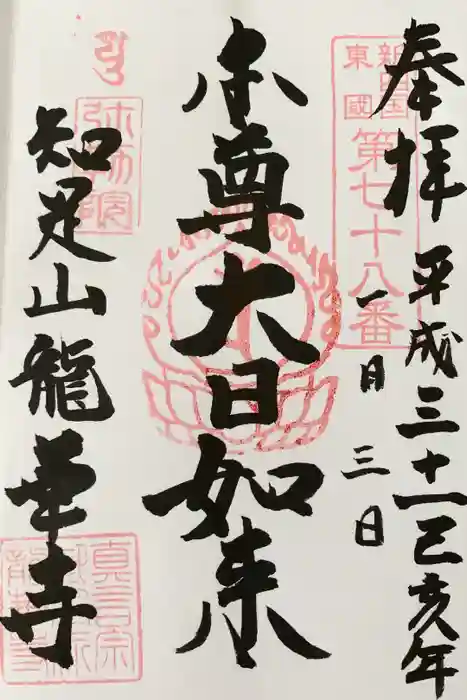 奉拝
平成三十一己亥年
一月三日
新四国
東國
第七十八番
本尊大日如来
弥勒院
知足山龍華寺